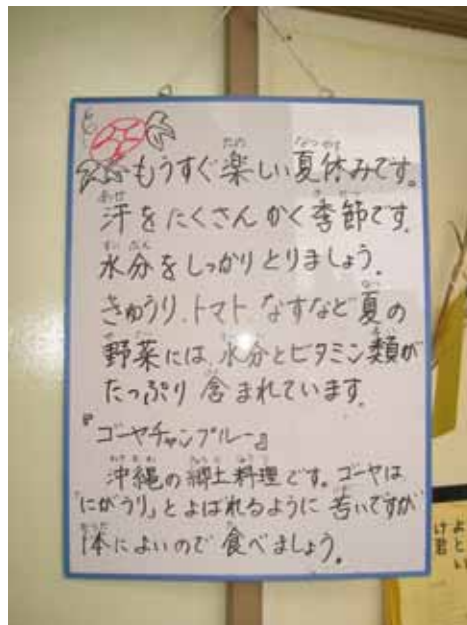 もうすぐ楽しい夏休みです。
汗をたくさんかく季節です。
水分をしっかりとりましょう。
きゅうり、トマト なすなど夏の
野菜には、水分とビタミン類が
たっぷり含まれています。
『ゴーヤチャンプルー』
沖縄の郷土料理です。ゴーヤは
「にがうり」とよばれるように苦いですが
体によいので食べましょう。